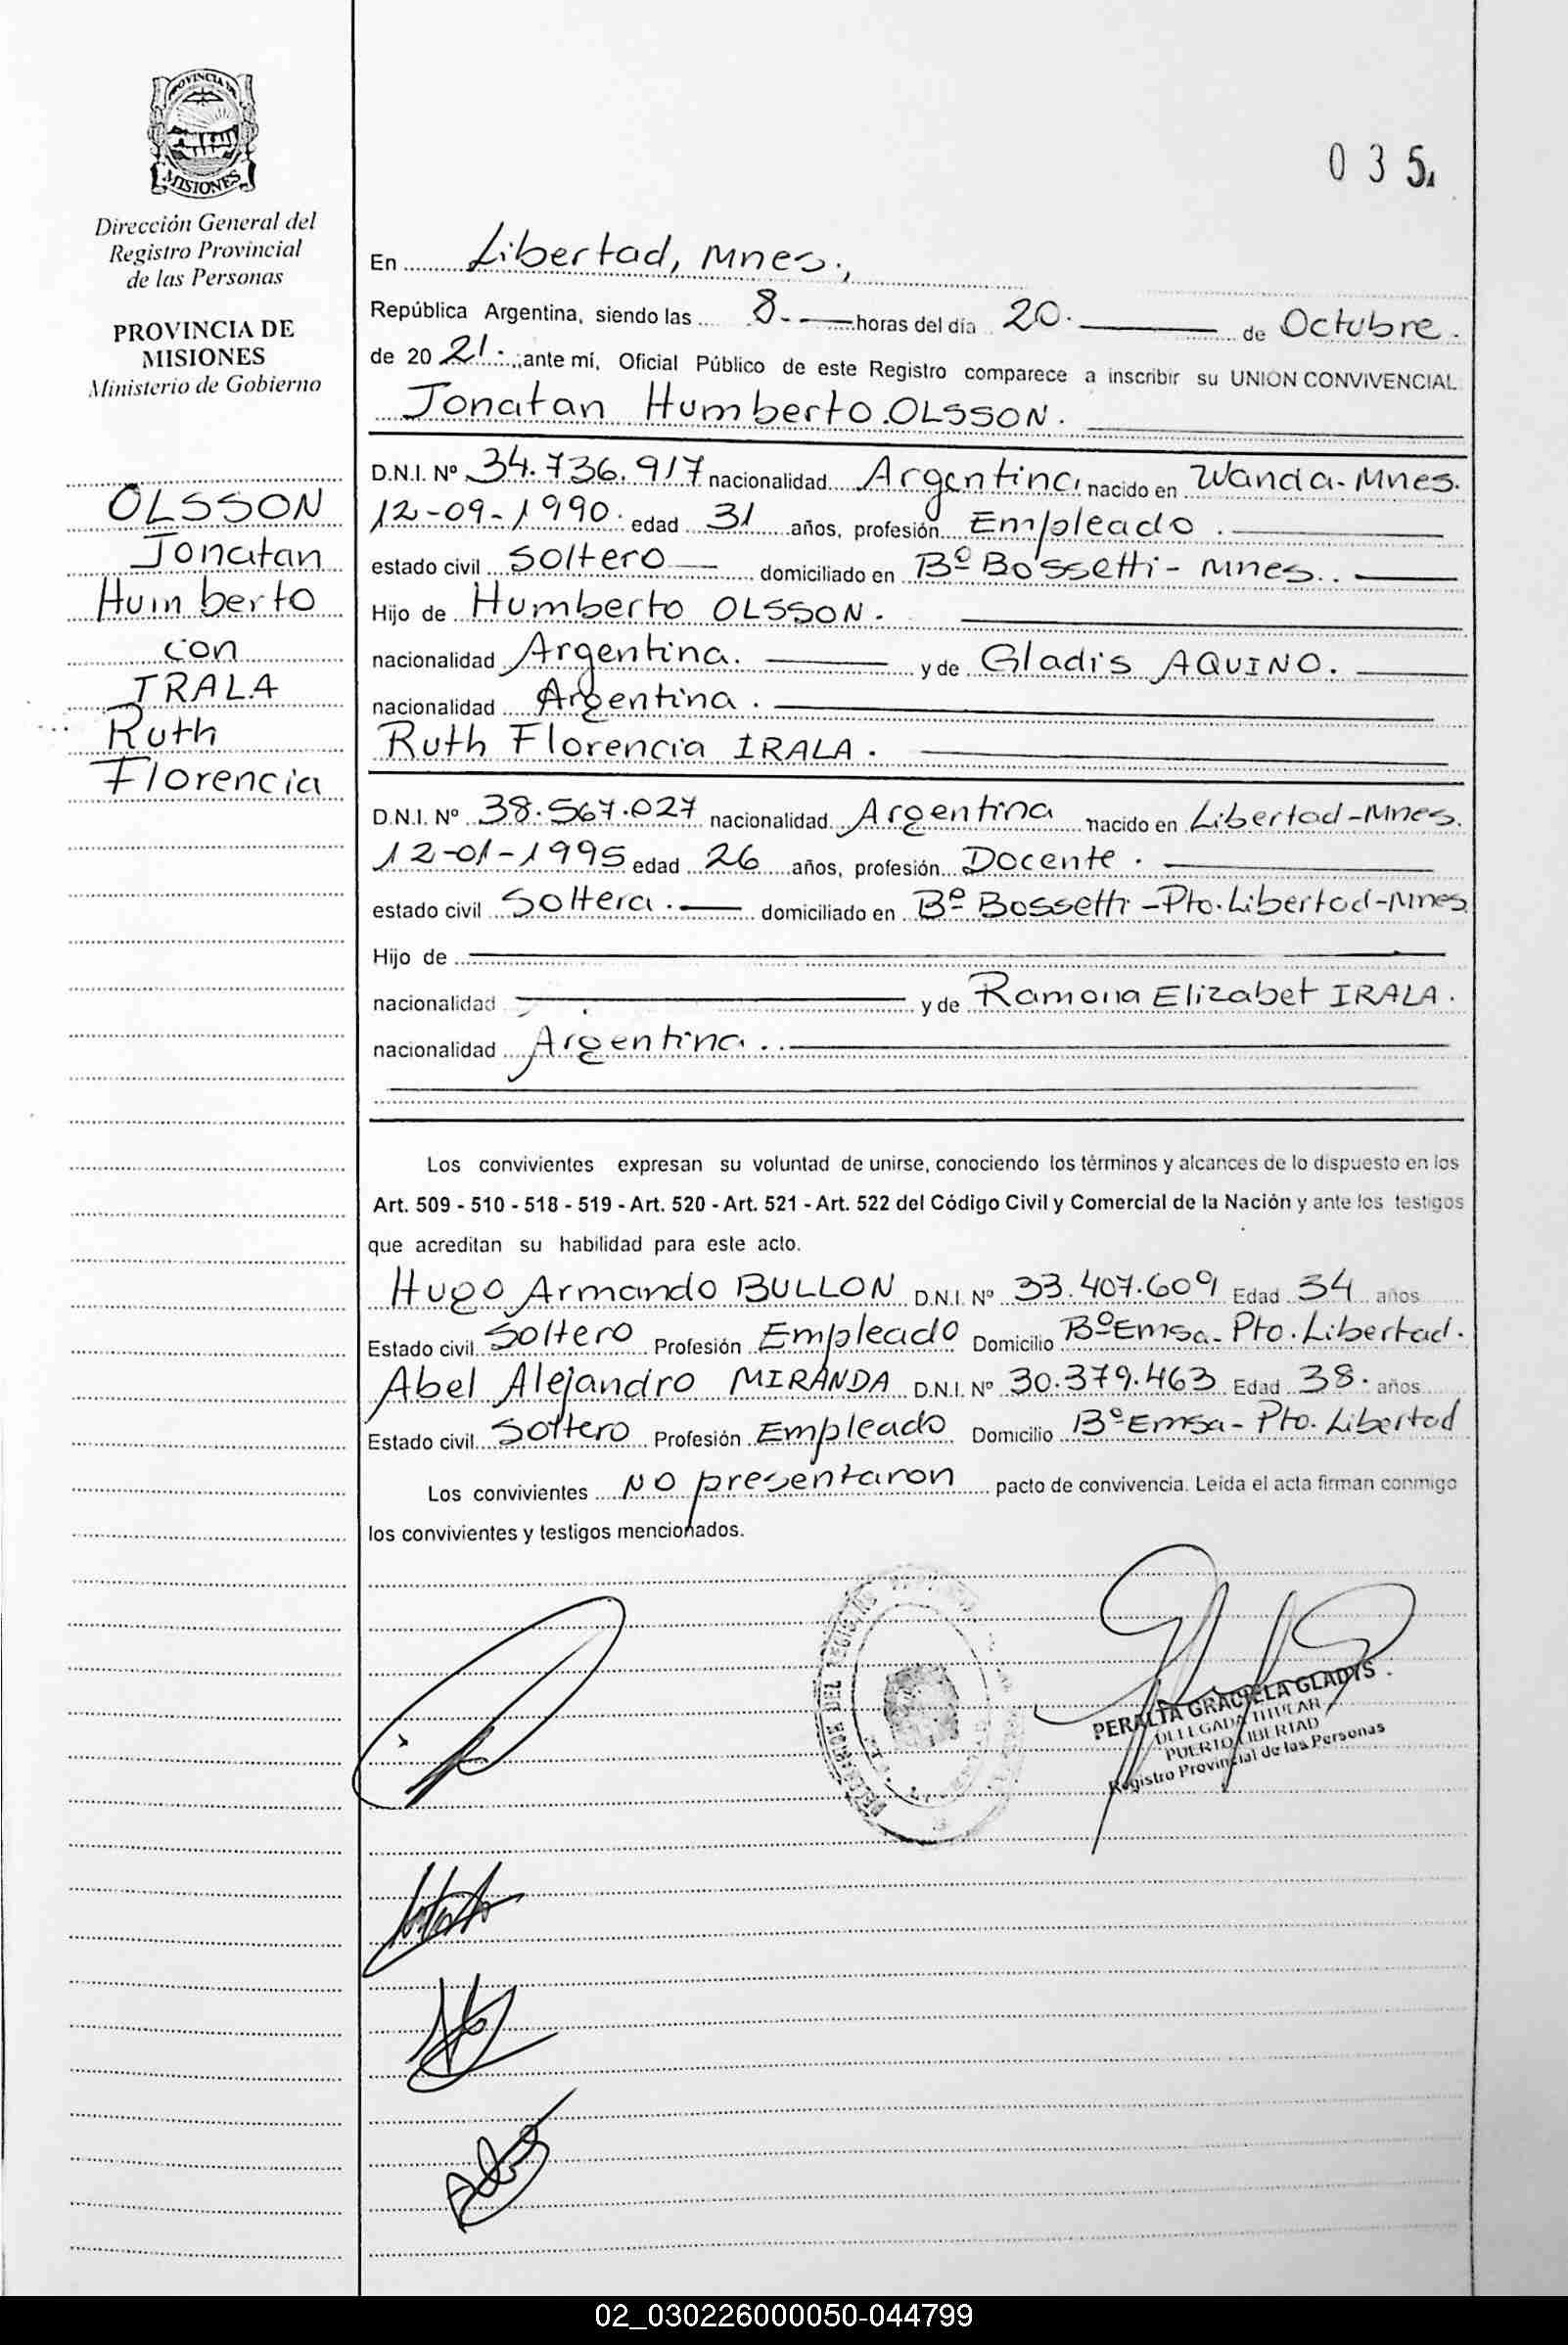 PROVINCIA DE
MISIONES
Dirección General del
Registro Provincial
de las Personas
PROVINCIA DE
MISIONES
Ministerio de Gobierno
OLSSON
Jonatan
Humberto
con
IRALA
Ruth
Florencia
035
En Libertad, Mnes.,
República Argentina, siendo las 8. horas del día 20. de Octubre.
de 20 21. ,ante mí, Oficial Público de este Registro comparece a inscribir su UNION CONVIVENCIAL
Jonatan Humberto OLSSON.
D.N.I. Nº 34.736.917 nacionalidad Argentina nacido en Wanda-Mnes.
12-09-1990. edad 31 años, profesión Empleado.
estado civil Soltero domiciliado en Bº Bossetti - Mnes.
Hijo de Humberto OLSSON.
nacionalidad Argentina. y de Gladis AQUINO.
nacionalidad Argentina.
Ruth Florencia IRALA.
D.N.I. Nº 38.567.027 nacionalidad Argentina nacido en Libertad-Mnes.
12-01-1995 edad 26 años, profesión Docente.
estado civil Soltera. domiciliado en Bº Bossetti -Pto.Libertad-Mnes
Hijo de
nacionalidad y de Ramona Elizabet IRALA.
nacionalidad Argentina.
Los convivientes expresan su voluntad de unirse, conociendo los términos y alcances de lo dispuesto en los
Art. 509 - 510 - 518 - 519 - Art. 520 - Art. 521 - Art. 522 del Código Civil y Comercial de la Nación y ante los testigos
que acreditan su habilidad para este acto.
Hugo Armando BULLON D.N.I. Nº 33.407.609 Edad 34 años
Estado civil Soltero Profesión Empleado Domicilio BºEmsa- Pto. Libertad.
Abel Alejandro MIRANDA D.N.I. Nº 30.379.463 Edad 38. años
Estado civil Soltero Profesión Empleado Domicilio BºEmsa- Pto. Libertad
Los convivientes NO presentaron pacto de convivencia. Leída el acta firman conmigo
los convivientes y testigos mencionados.
PERALTA GRACIELA GLADYS
DELEGADA TITULAR
PUERTO LIBERTAD
Registro Provincial de las Personas
02_030226000050-044799